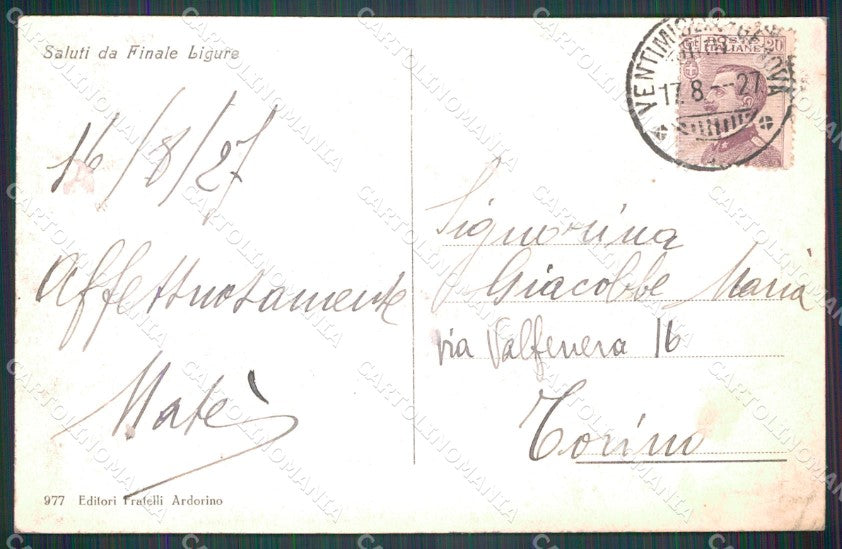 Saluti da Finale Ligure
16/8/27
Affettuosamente
Matè
977 Editori Fratelli Ardorino
VENTIMIGLIA-GENOVA
17.8.-27
POSTE
ITALIANE
20
Signorina
Giacobbe Maria
via Valfenera 16
Torino
CARTOLINOMANIA